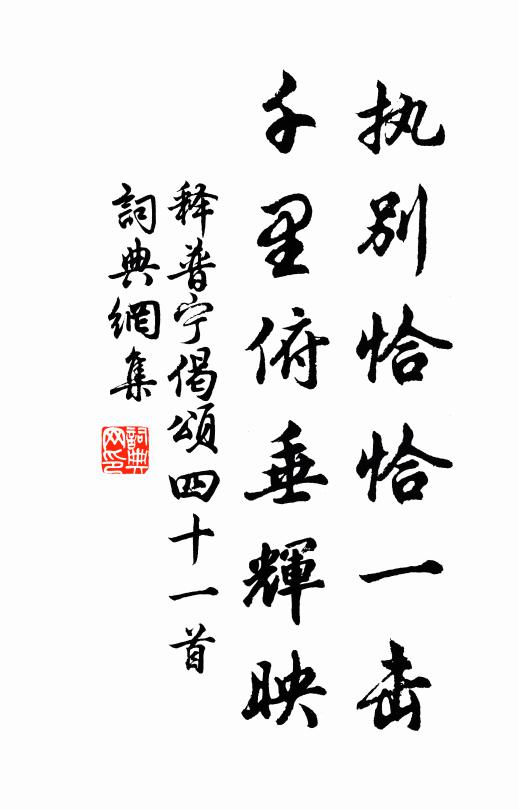 执别恰恰一击
千里俯垂輝映
释普宁偈頌四十一首
詞典網集
詞典网印